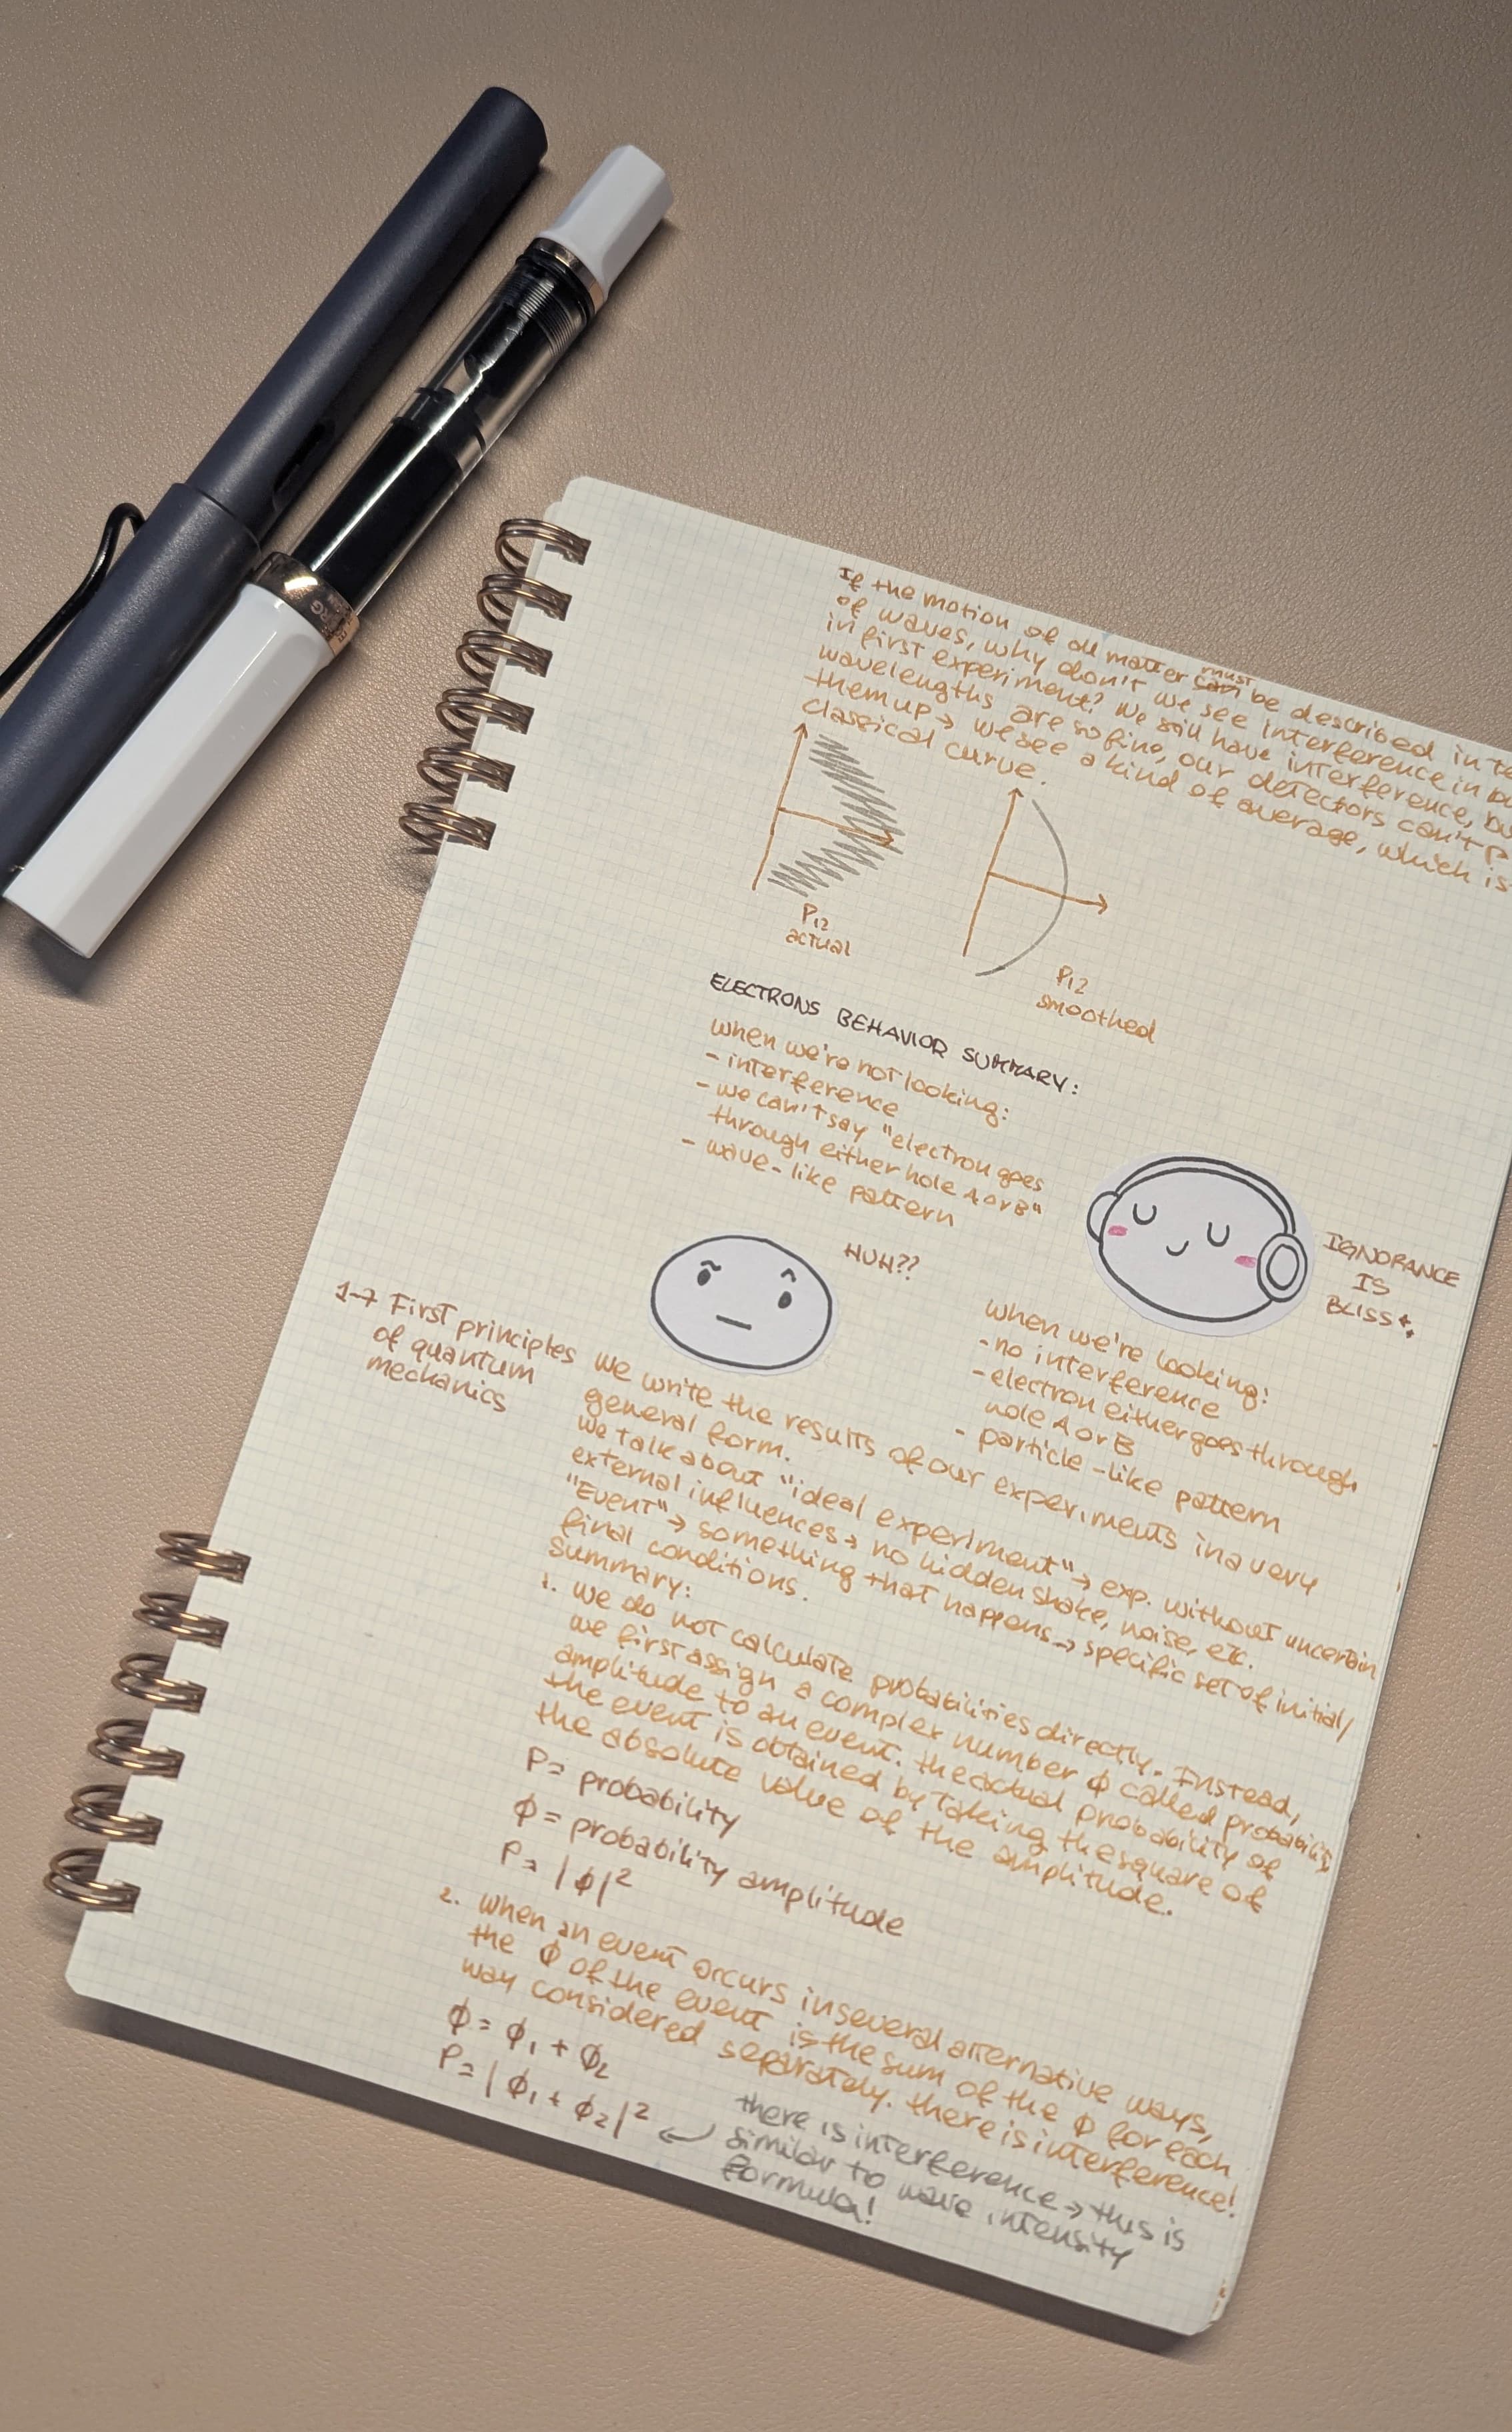 If the motion of all matter must
can be described in te
of waves, why don't we see interference in bu
in first experiment? We still have interference, bu
wavelengths are so fine, our detectors can't p
them up → we see a kind of average, which is
classical curve.
P12
actual
P12
smoothed
ELECTRONS BEHAVIOR SUMMARY:
when we're not looking:
- interference
- we can't say "electron goes
through either hole A or B"
- wave-like pattern
HUH??
IGNORANCE
IS
BLISS
when we're looking:
- no interference
- electron either goes through
hole A or B
- particle-like pattern
1-7 First principles
of quantum
mechanics
We write the results of our experiments in a very
general form.
We talk about "ideal experiment" → exp. without uncertain
external influences → no hidden shake, noise, etc.
"Event" → something that happens → specific set of initial/
final conditions.
Summary:
1. We do not calculate probabilities directly. Instead,
we first assign a complex number ϕ called probability
amplitude to an event. the actual probability of
the event is obtained by taking the square of
the absolute value of the amplitude.
P = probability
ϕ = probability amplitude
P = |ϕ|²
2. When an event occurs in several alternative ways,
the ϕ of the event is the sum of the ϕ for each
way considered separately. there is interference!
ϕ = ϕ₁ + ϕ₂
P = |ϕ₁ + ϕ₂|²
there is interference → this is
similar to wave intensity
formula!